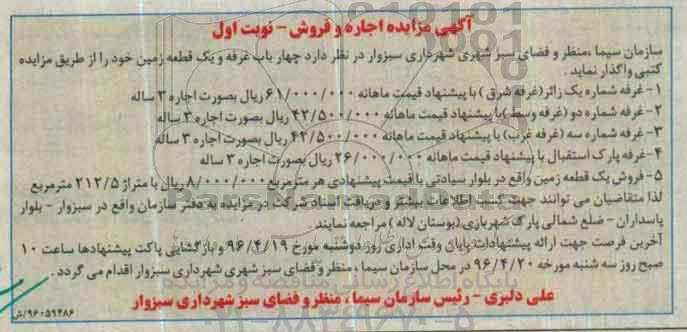 آگهی مزایده اجاره و فروش - نوبت اول
سازمان سیما ،منظر و فضای سبز شهری شهرداری سبزوار در نظر دارد چهار باب غرفه و یک قطعه زمین خود را از طریق مزایده
کتبی واگذار نماید .
۱- غرفه شماره یک زائر(غرفه شرق ) با پیشنهاد قیمت ماهانه ۶۱/۰۰۰/۰۰۰ ریال بصورت اجاره ۳ ساله
۲-غرفه شماره دو (غرفه وسط )با پیشنهاد قیمت ماهانه ۴۲/۵۰۰/۰۰۰ ریال بصورت اجاره ۳ ساله
۳-غرفه شماره سه (غرفه غرب) با پیشنهاد قیمت ماهانه ۴۲/۵۰۰/۰۰۰ ریال بصورت اجاره ۳ ساله
۴-غرفه پارک استقبال با پیشنهاد قیمت ماهانه ۲۶/۰۰۰/۰۰۰ ریال بصورت اجاره ۳ ساله
۵- فروش یک قطعه زمین واقع در بلوار سیادتی با قیمت پیشنهادی هر مترمربع ۸/۰۰۰/۰۰۰ ریال با متراژ ۲۱۲/۵ مترمربع
لذا متقاضیان می توانند جهت کسب اطلاعات بیشتر و دریافت اسناد شرکت در مزایده به دفتر سازمان واقع در سبزوار - بلوار
پاسداران - ضلع شمالی پارک شهربازی (بوستان لاله ) مراجعه نمایند .
آخرین فرصت جهت ارائه پیشنهادات پایان وقت اداری روز دوشنبه مورخ ۹۶/۴/۱۹ و بازگشایی پاکت پیشنهادها ساعت ۱۰
صبح روز سه شنبه مورخه ۹۶/۴/۲۰ در محل سازمان سیما ، منظر و فضای سبز شهری شهرداری سبزوار اقدام می گردد .
علی دلبری - رئیس سازمان سیما ، منظر و فضای سبز شهرداری سبزوار
۹۶۰۵۹۴۸۶/ش